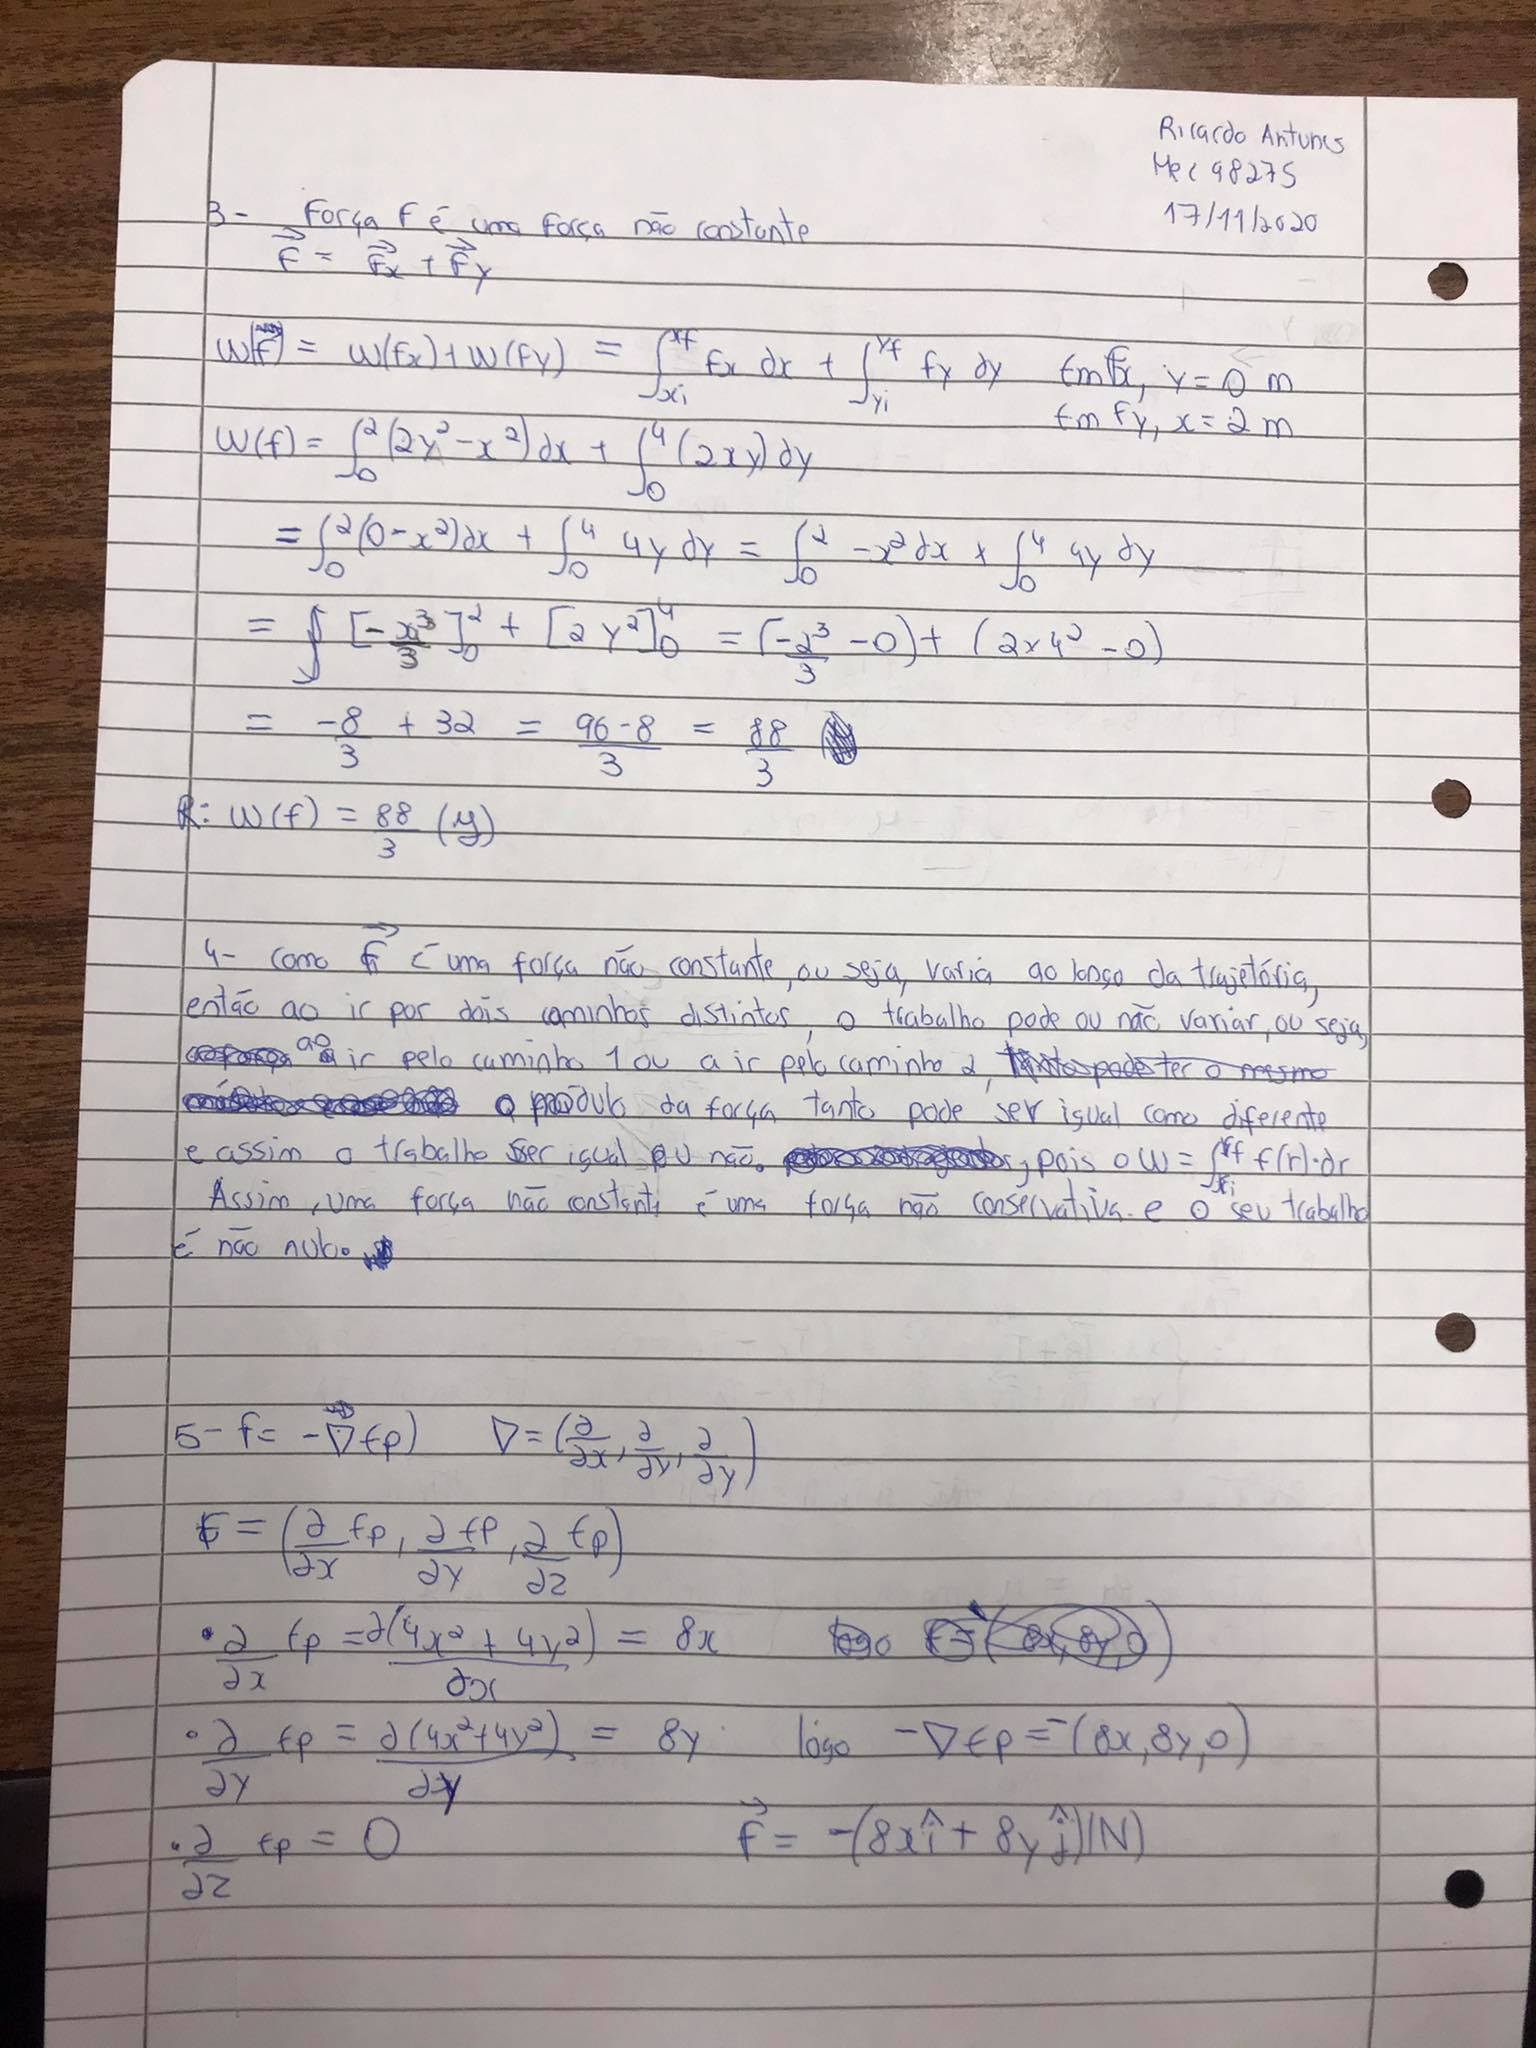 Ricardo Antunes
Mec 98275
17/11/2020
3- Força F é uma força não constante
F⃗ = F⃗x + F⃗y
W(F⃗) = W(Fx) + W(Fy) = ∫_{xi}^{xf} Fx dx + ∫_{yi}^{yf} Fy dy Em Fx, y = 0 m
Em Fy, x = 2 m
W(F) = ∫_0^2 (2y² - x²) dx + ∫_0^4 (2xy) dy
= ∫_0^2 (0 - x²) dx + ∫_0^4 4y dy = ∫_0^2 -x² dx + ∫_0^4 4y dy
= [-x³/3]_0^2 + [2y²]_0^4 = (-2³/3 - 0) + (2×4² - 0)
= -8/3 + 32 = 96-8/3 = 88/3
R: W(F) = 88/3 (J)
4- Como F⃗ é uma força não constante, ou seja, varia ao longo da trajetória,
então ao ir por dois caminhos distintos, o trabalho pode ou não variar, ou seja,
ao ir pelo caminho 1 ou a ir pelo caminho 2,
o módulo da força tanto pode ser igual como diferente
e assim o trabalho ser igual ou não, pois o W = ∫_{xi}^{xf} F(r)·dr
Assim, uma força não constante é uma força não conservativa e o seu trabalho
é não nulo.
5- F = -∇⃗Ep) ∇ = (∂/∂x, ∂/∂y, ∂/∂y)
F = (∂/∂x Ep, ∂/∂y Ep, ∂/∂z Ep)
• ∂/∂x Ep = ∂(4x² + 4y²)/∂x = 8x
• ∂/∂y Ep = ∂(4x²+4y²)/∂y = 8y logo -∇Ep = -(8x, 8y, 0)
• ∂/∂z Ep = 0 F⃗ = -(8x î + 8y ĵ)(N)